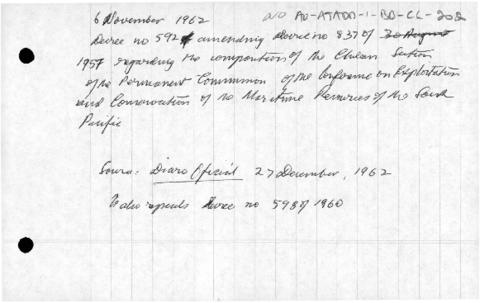 6 November 1962 a/o AO-ATADD-1-BD-CL-202
Decree no 592 amending decree no 837 of 20 August
1957 regarding the composition of the Chilean Section
of the Permanent Commission of the Conference on Exploitation
and Conservation of the Maritime Resources of the South
Pacific
Source: Diario Oficial 27 December, 1962
It also repeals decree no 598 of 1960